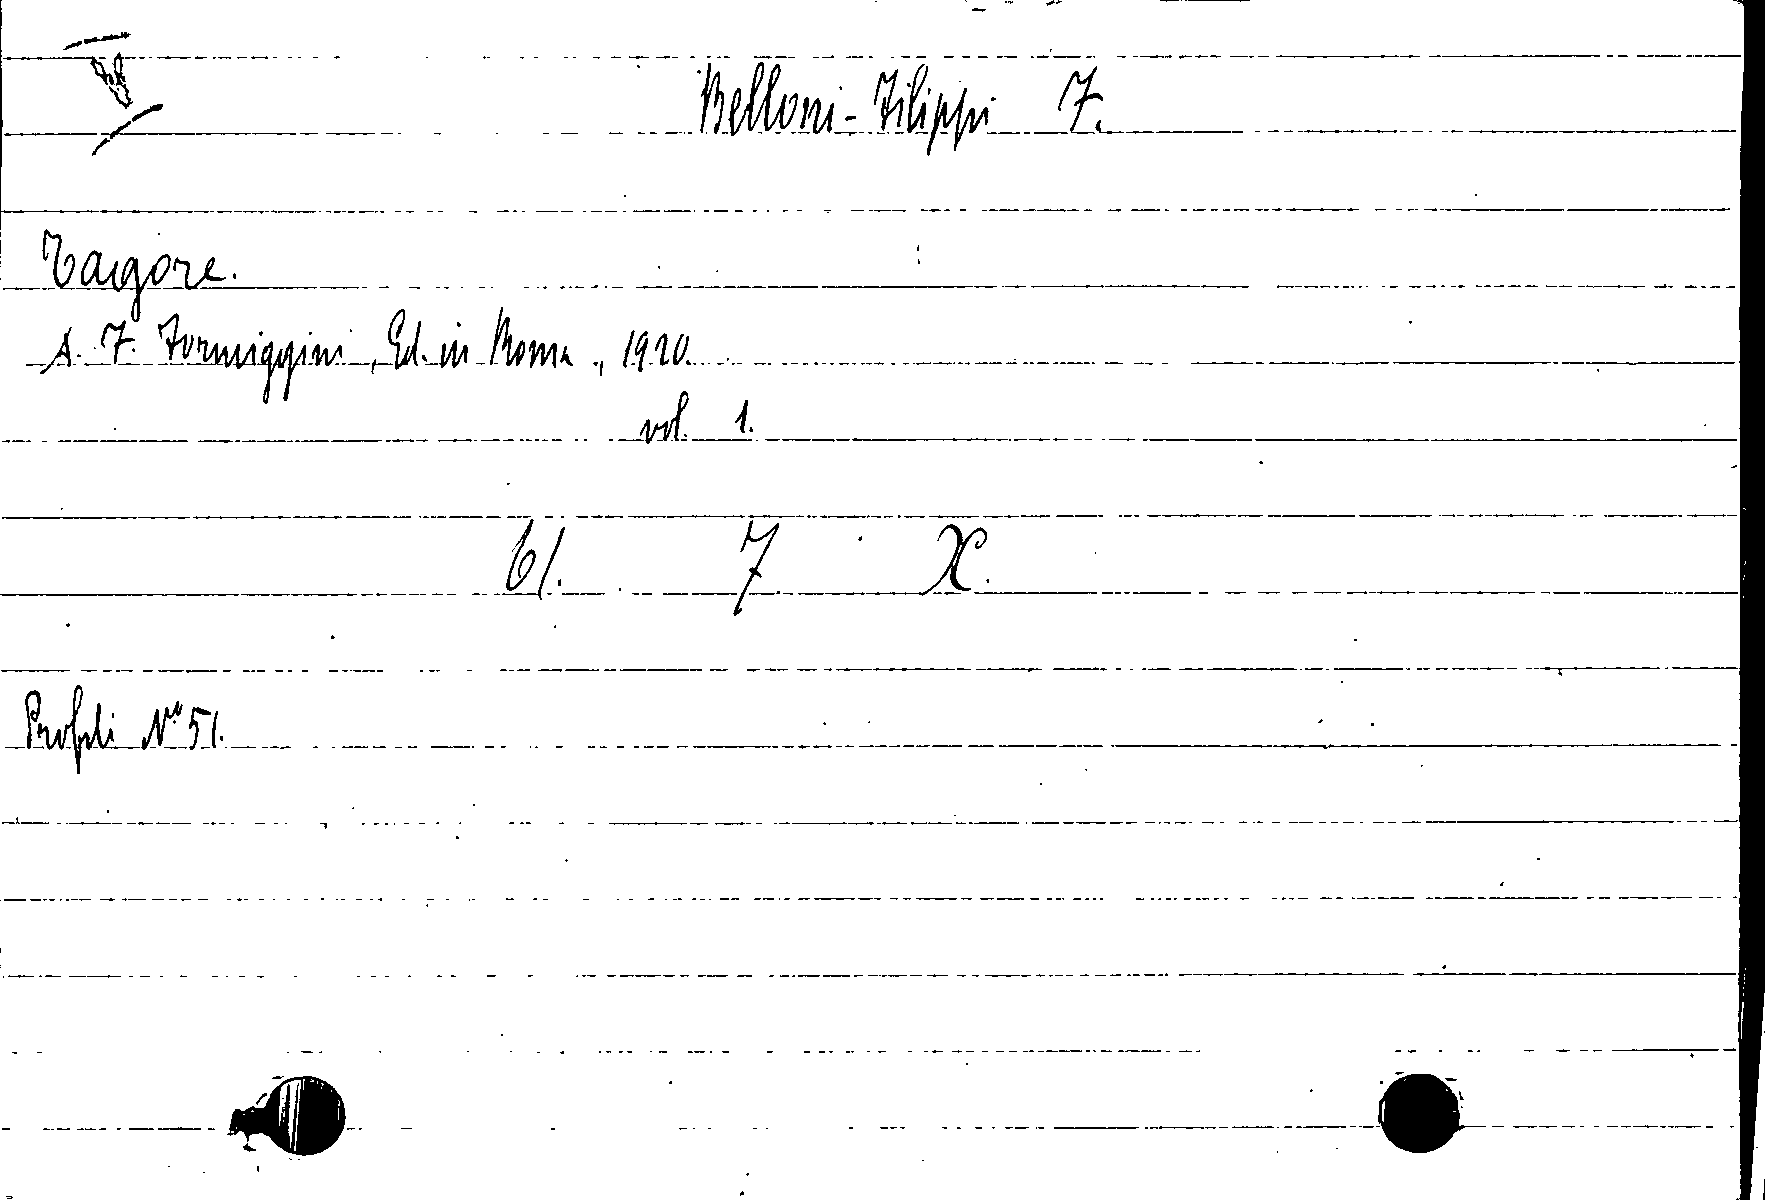 Belloni-Filippi F.
Tagore.
A. F. Formiggini, Ed. in Roma, 1920.
vol. 1.
61. 7 X.
Profili N° 51.